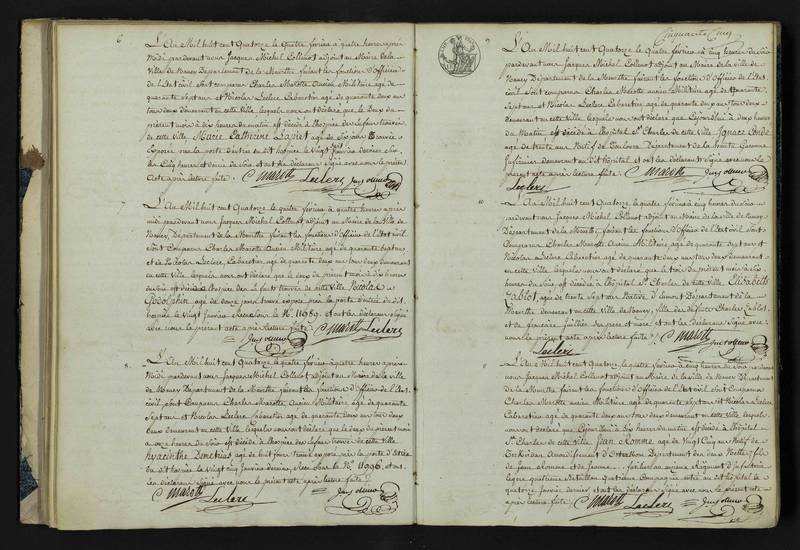 6
L'An Mil huit cent Quatorze le quatre février à quatre heures après
Midi pardevant nous Jacques Michel Collenot adjoint au Maire de la
Ville de Nancy Département de la Meurthe faisant les fonctions d'Officier
de l'Etat civil sont comparus Charles Marotte ancien Militaire agé de
quarante sept ans et Nicolas Leclerc Cabaretier agé de quarante deux ans
tous deux demeurant en cette ville, lesquels nous ont déclaré que le deux du
présent mois à dix heures du matin est décédé à l'hospice des Enfans trouvés
de cette Ville Marie Catherine agée de six jours
exposée près la porte d'entrée du dit hospice le vingt janvier dernier
cinq heures et demie du soir et ont les déclarans signé avec nous le présent
Acte après lecture faite.
C Marotte Leclerc
7
L'An Mil huit cent Quatorze le quatre février à quatre heures après
midi pardevant nous Jacques Michel Collenot adjoint au Maire de la Ville de
Nancy, Département de la Meurthe faisant les fonctions d'Officier de l'Etat civil
sont Comparus Charles Marotte Ancien Militaire agé de quarante sept ans
et Nicolas Leclerc, Cabaretier agé de quarante deux ans tous deux demeurant
en cette ville, lesquels nous ont déclaré que le deux du présent mois à dix heures
du soir est décédé à l'hospice des Enfans trouvés de cette Ville Nicolas
Godolphin agé de onze jours trouvé exposé près la porte d'entrée du dit
hospice le vingt Janvier sous le N° 11989. et ont les déclarans signé
avec nous le présent acte après lecture faite.
C Marotte Leclerc
8
L'An Mil huit cent Quatorze le quatre février à quatre heures après
Midi pardevant nous Jacques Michel Collenot adjoint au Maire de la Ville
de Nancy Département de la Meurthe faisant les fonctions d'Officier de l'Etat
civil sont Comparus Charles Marotte, Ancien Militaire agé de quarante
Sept ans et Nicolas Leclerc Cabaretier agé de quarante deux ans tous deux
demeurant en cette Ville, lesquels nous ont déclaré que le deux du présent mois
à onze heures du soir est décédé à l'hospice des Enfans trouvés de cette Ville
hyacinthe Demetrius agé de huit jours trouvé exposé près la porte d'entrée
du dit hospice le vingt cinq Janvier dernier, sous le N° 11990, et ont
les déclarans signé avec nous le présent acte après lecture faite.
C Marotte Leclerc
Cinquante Cinq
9
L'An Mil huit cent Quatorze le quatre février à cinq heures du soir
pardevant nous Jacques Michel Collenot adjoint au Maire de la Ville de
Nancy Département de la Meurthe faisant les fonctions d'Officier de l'Etat
civil sont comparus Charles Marotte ancien Militaire agé de Quarante
Sept ans et Nicolas Leclerc Cabaretier agé de quarante deux ans tous deux
demeurant en cette ville, lesquels nous ont déclaré que à deux heures
du Matin est décédé à l'hôpital St. Charles de cette Ville Ignace
agé de trente ans natif de Toulouse Département de la haute Garonne
Infirmier demeurant au dit hôpital, et ont les déclarans signé avec nous le
présent acte après lecture faite.
C Marotte
Leclerc
10
L'An Mil huit cent Quatorze, le quatre février à cinq heures du soir
pardevant nous Jacques Michel Collenot adjoint au Maire de la ville de Nancy
Département de la Meurthe, faisant les fonctions d'Officier de l'Etat civil, sont
Comparus Charles Marotte Ancien Militaire agé de quarante sept ans et
Nicolas Leclerc, Cabaretier agé de quarante deux ans tous deux demeurant
en cette Ville, lesquels nous ont déclaré que le trois du présent mois à dix
heures du soir, est décédé à l'hôpital St. Charles de cette Ville, Elisabeth
Zablot, agée de trente sept ans Native d' Département de la
Meurthe demeurant en cette Ville de Nancy, fille des défunts Charles Zablot,
et de ses père et mère. et ont les déclarans signé avec
nous le présent acte après lecture faite.
C Marotte
Leclerc
L'An Mil huit cent Quatorze, le quatre février à cinq heures du soir pardevant
nous Jacques Michel Collenot adjoint au Maire de la ville de Nancy Département
de la Meurthe faisant les fonctions d'Officier de l'Etat civil sont Comparus
Charles Marotte ancien Militaire, agé de quarante sept ans et Nicolas Leclerc
Cabaretier agé de quarante deux ans tous deux demeurant en cette ville, lesquels
nous ont déclaré que à dix heures du matin est décédé à l'hôpital
St. Charles de cette Ville Jean Romme agé de Vingt Cinq ans Natif de
Arrondissement d' Département des deux Nethes fils
de Jean Romme et de Jeanne Régiment d'Infanterie
légère quatrième Bataillon quatrième Compagnie entré au dit hôpital le
quatorze Janvier dernier et ont les déclarans signé avec nous le présent acte
après lecture faite.
C Marotte Leclerc